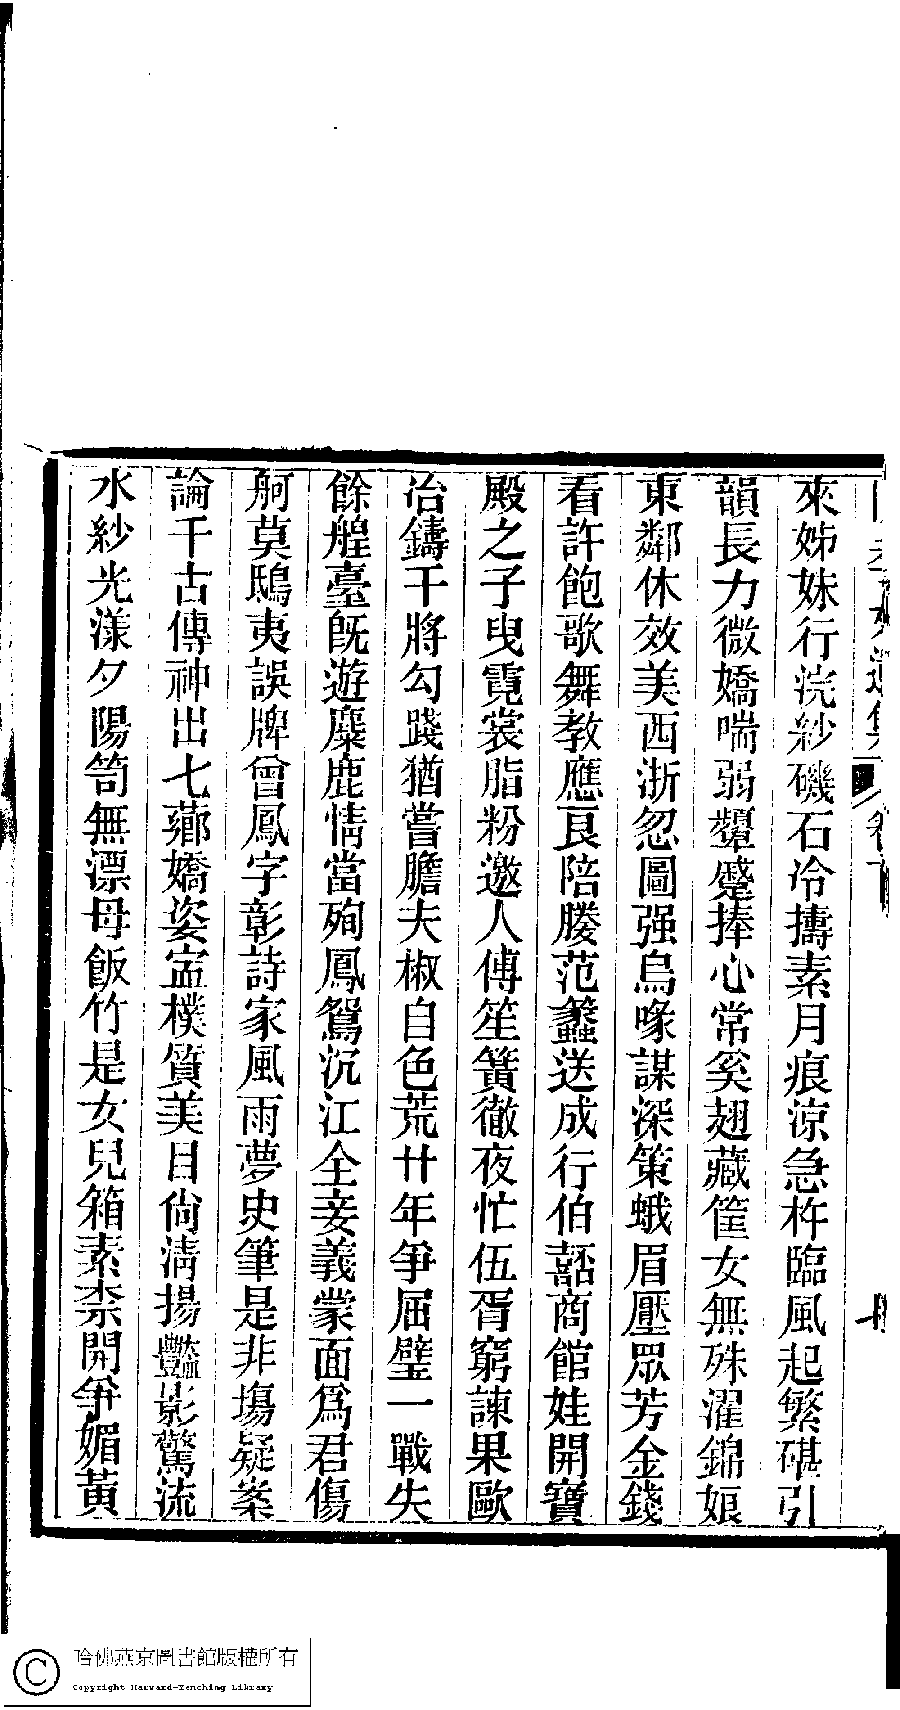 來姊妹行浣紗磯石冷擣素月痕涼急杵臨風起繁碪引
韻長力微嬌喘弱顰蹙捧心常奚翅藏筐女無殊濯錦娘
東鄰休效美西浙忽圖强烏喙謀深策蛾眉壓眾芳金錢
看許飽歌舞教應良陪媵范蠡送成行伯嚭商館娃開寶
殿之子曳霓裳脂粉邀人傳笙簧徹夜忙伍胥窮諫果歐
冶鑄干將勾踐猶嘗膽夫椒自色荒廿年爭屈璧一戰失
餘艎臺既遊麋鹿情當殉鳳鴛沉江全妾義蒙面爲君傷
舸莫鴟夷誤牌曾鳳字彰詩家風雨夢史筆是非塲疑案
論千古傳神出七薌嬌姿寍樸質美目尙淸揚豔影驚流
水紗光漾夕陽笥無漂母飯竹是女兒箱素柰開爭媚黃
集 卷下
哈佛燕京圖書館版權所有
Copyright Harvard-Yenching Library